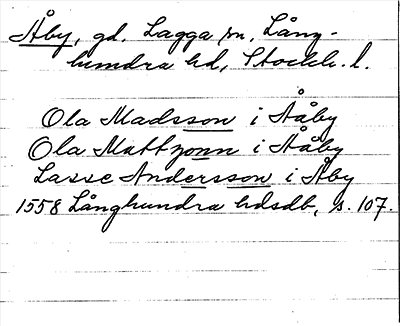 Åby, gd. Lagga sn, Lång-
hundra hd, Stockh. l.
Ola Madsson i Åäby
Ola Mattzonn i Åäby
Lasse Andersson i Åby
1558 Långhundra hdsdb, s. 107.